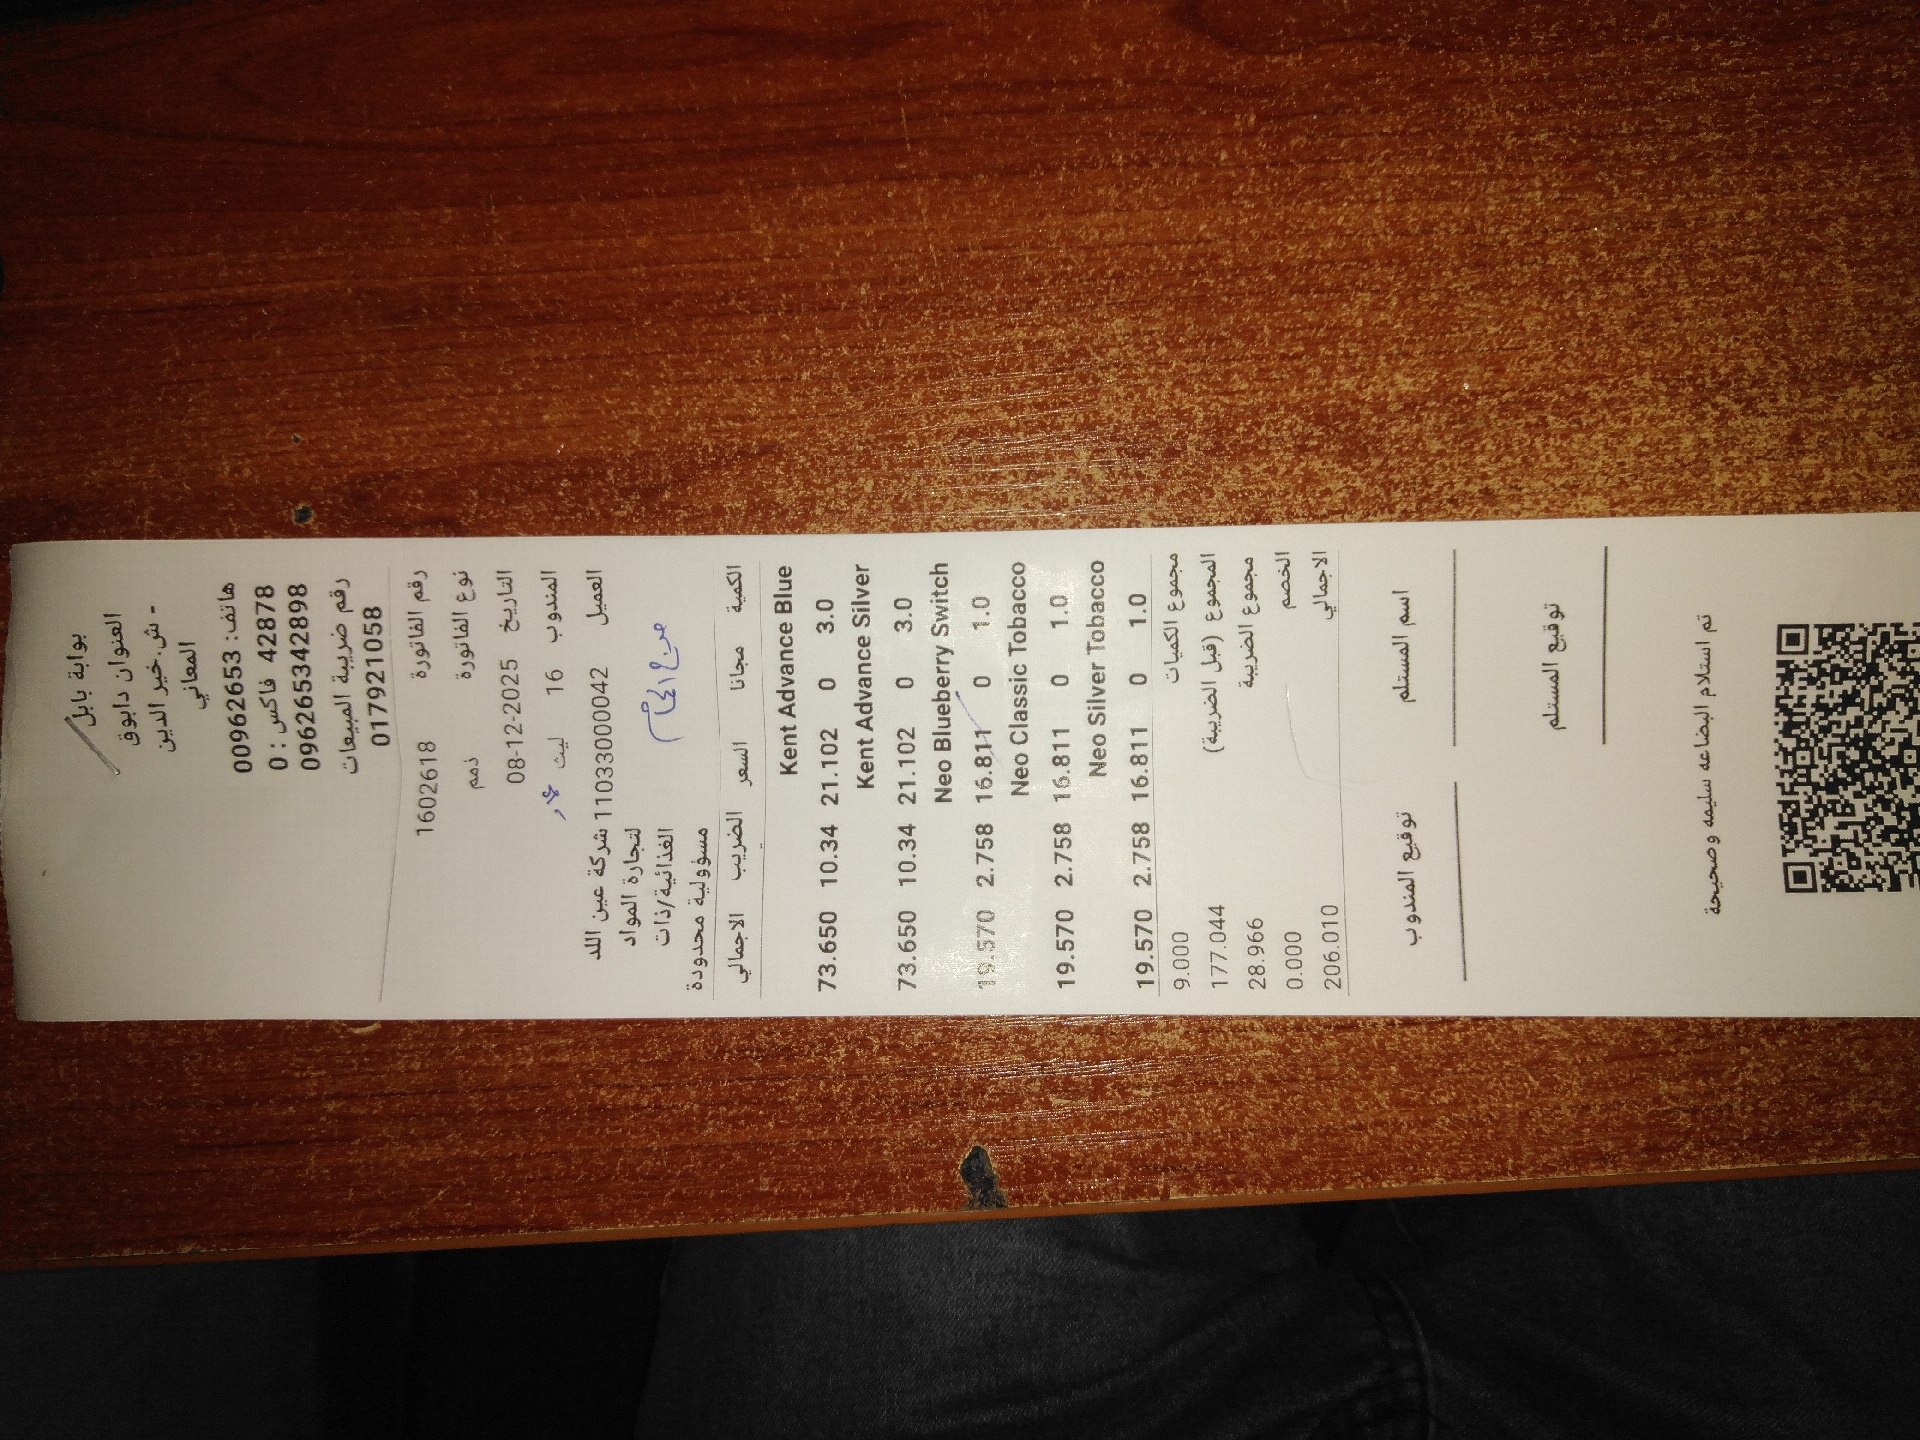 بوابة بابل
العنوان دابوق
- ش.خير الدين
المعاني
هاتف: 00962653
42878 فاكس : 0
096265342898
رقم ضريبة المبيعات
017921058
رقم الفاتورة 1602618
نوع الفاتورة ذمم
التاريخ 08-12-2025
المندوب 16 ليث
العميل 1103300042 شركة عين اللد
لتجارة المواد
الغذائية/ذات
مسؤولية محدودة
الكمية مجانا السعر الضريب الاجمالي
Kent Advance Blue
73.650 10.34 21.102 0 3.0
Kent Advance Silver
73.650 10.34 21.102 0 3.0
Neo Blueberry Switch
19.570 2.758 16.811 0 1.0
Neo Classic Tobacco
19.570 2.758 16.811 0 1.0
Neo Silver Tobacco
19.570 2.758 16.811 0 1.0
مجموع الكميات 9.000
المجموع (قبل الضريبة) 177.044
مجموع الضريبة 28.966
الخصم 0.000
الاجمالي 206.010
اسم المستلم توقيع المندوب
توقيع المستلم
تم استلام البضاعه سليمه وصحيحة